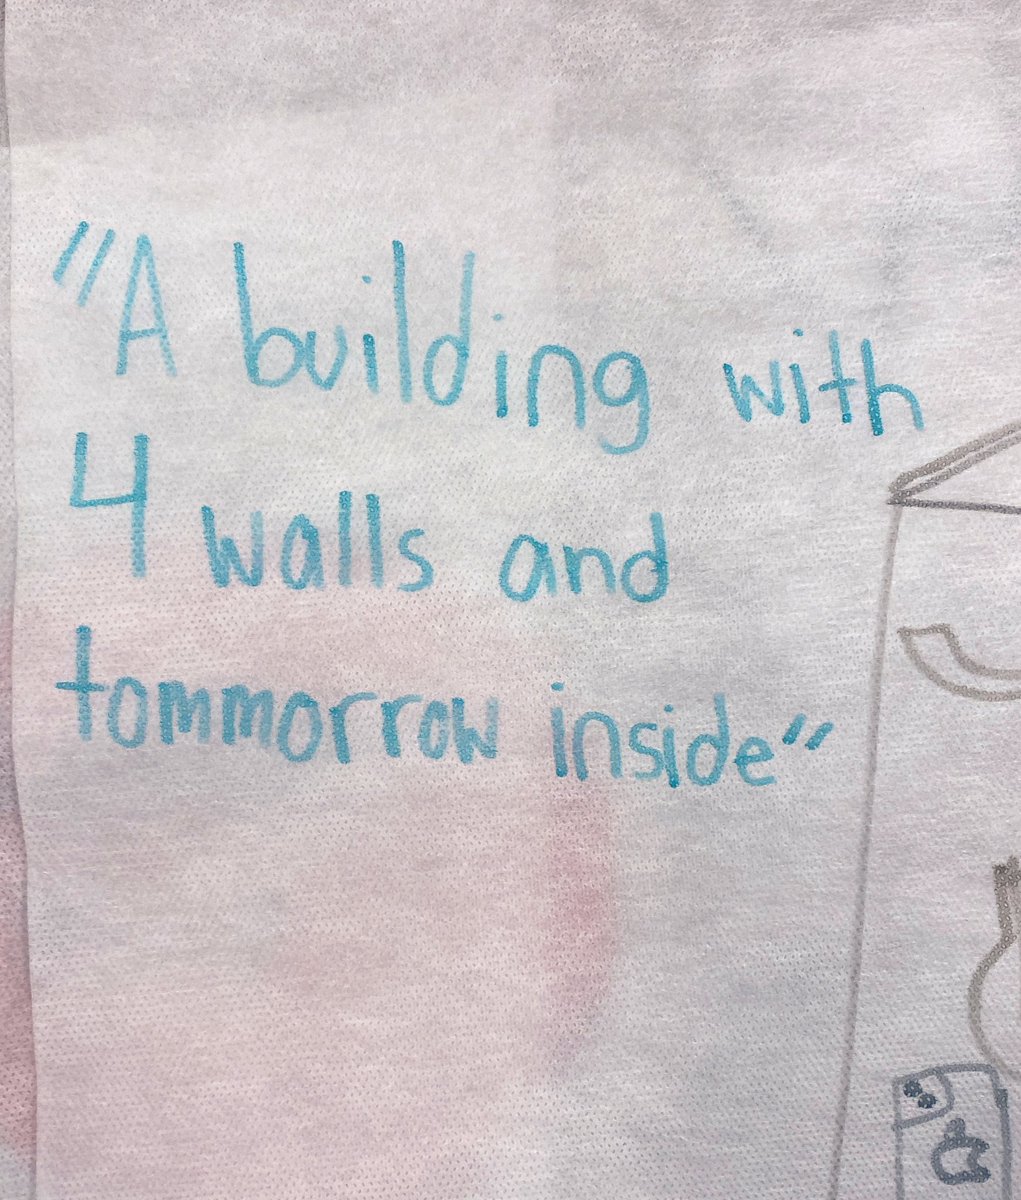 "A building with
4 walls and
tommorrow inside"